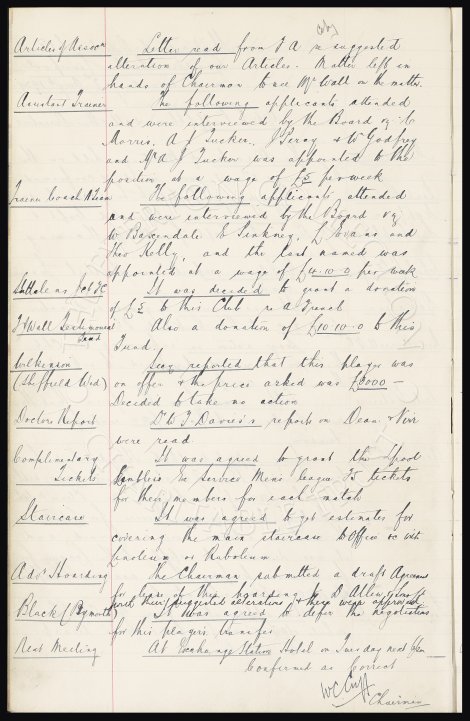 Articles of Assocn Letter read from F A re suggested
alteration of our Articles. Matter left in
hands of Chairman to see Mr Wall on the matter.
Assistant Trainer The following applicants attended
and were interviewed by the Board
Morris, A J Tucker, J Percy & W Godfrey
and Mr A J Tucker was appointed to the
position at a wage of £5 per week
Trainer Coach A Team The following applicants attended
and were interviewed by the Board viz
W Baxendale E Pinkney, L Evans and
Theo Kelly, and the last named was
appointed at a wage of £4-10-0 per week
It was decided to grant a donation
of £5 to this Club re A French
F J Wall Testimonial Fund Also a donation of £10-10-0 to this
Fund.
Wilkinson Secy reported that this player was
(Sheffield Wed) on offer & the price asked was £3000 –
Decided to take no action
Doctors Report Dr D J Davies's reports on Dean & Virr
were read
Complimentary It was agreed to grant the Lpool
Tickets Limbless Ex Service Mens league, 75 tickets
for their members for each match
Staircase It was agreed to get estimates for
covering the main staircase to Office with
Linoleum or Rubolium.
Advt Hoarding The Chairman submitted a draft Agreement
for lease of this hoarding to D Allen
with their suggested alterations & these were approved
Black (Plymouth) It was agreed to defer the negotiations
for this players transfer
Next Meeting At Exchange Station Hotel on Tuesday next
Confirmed as Correct
W C Cuff
Chairman